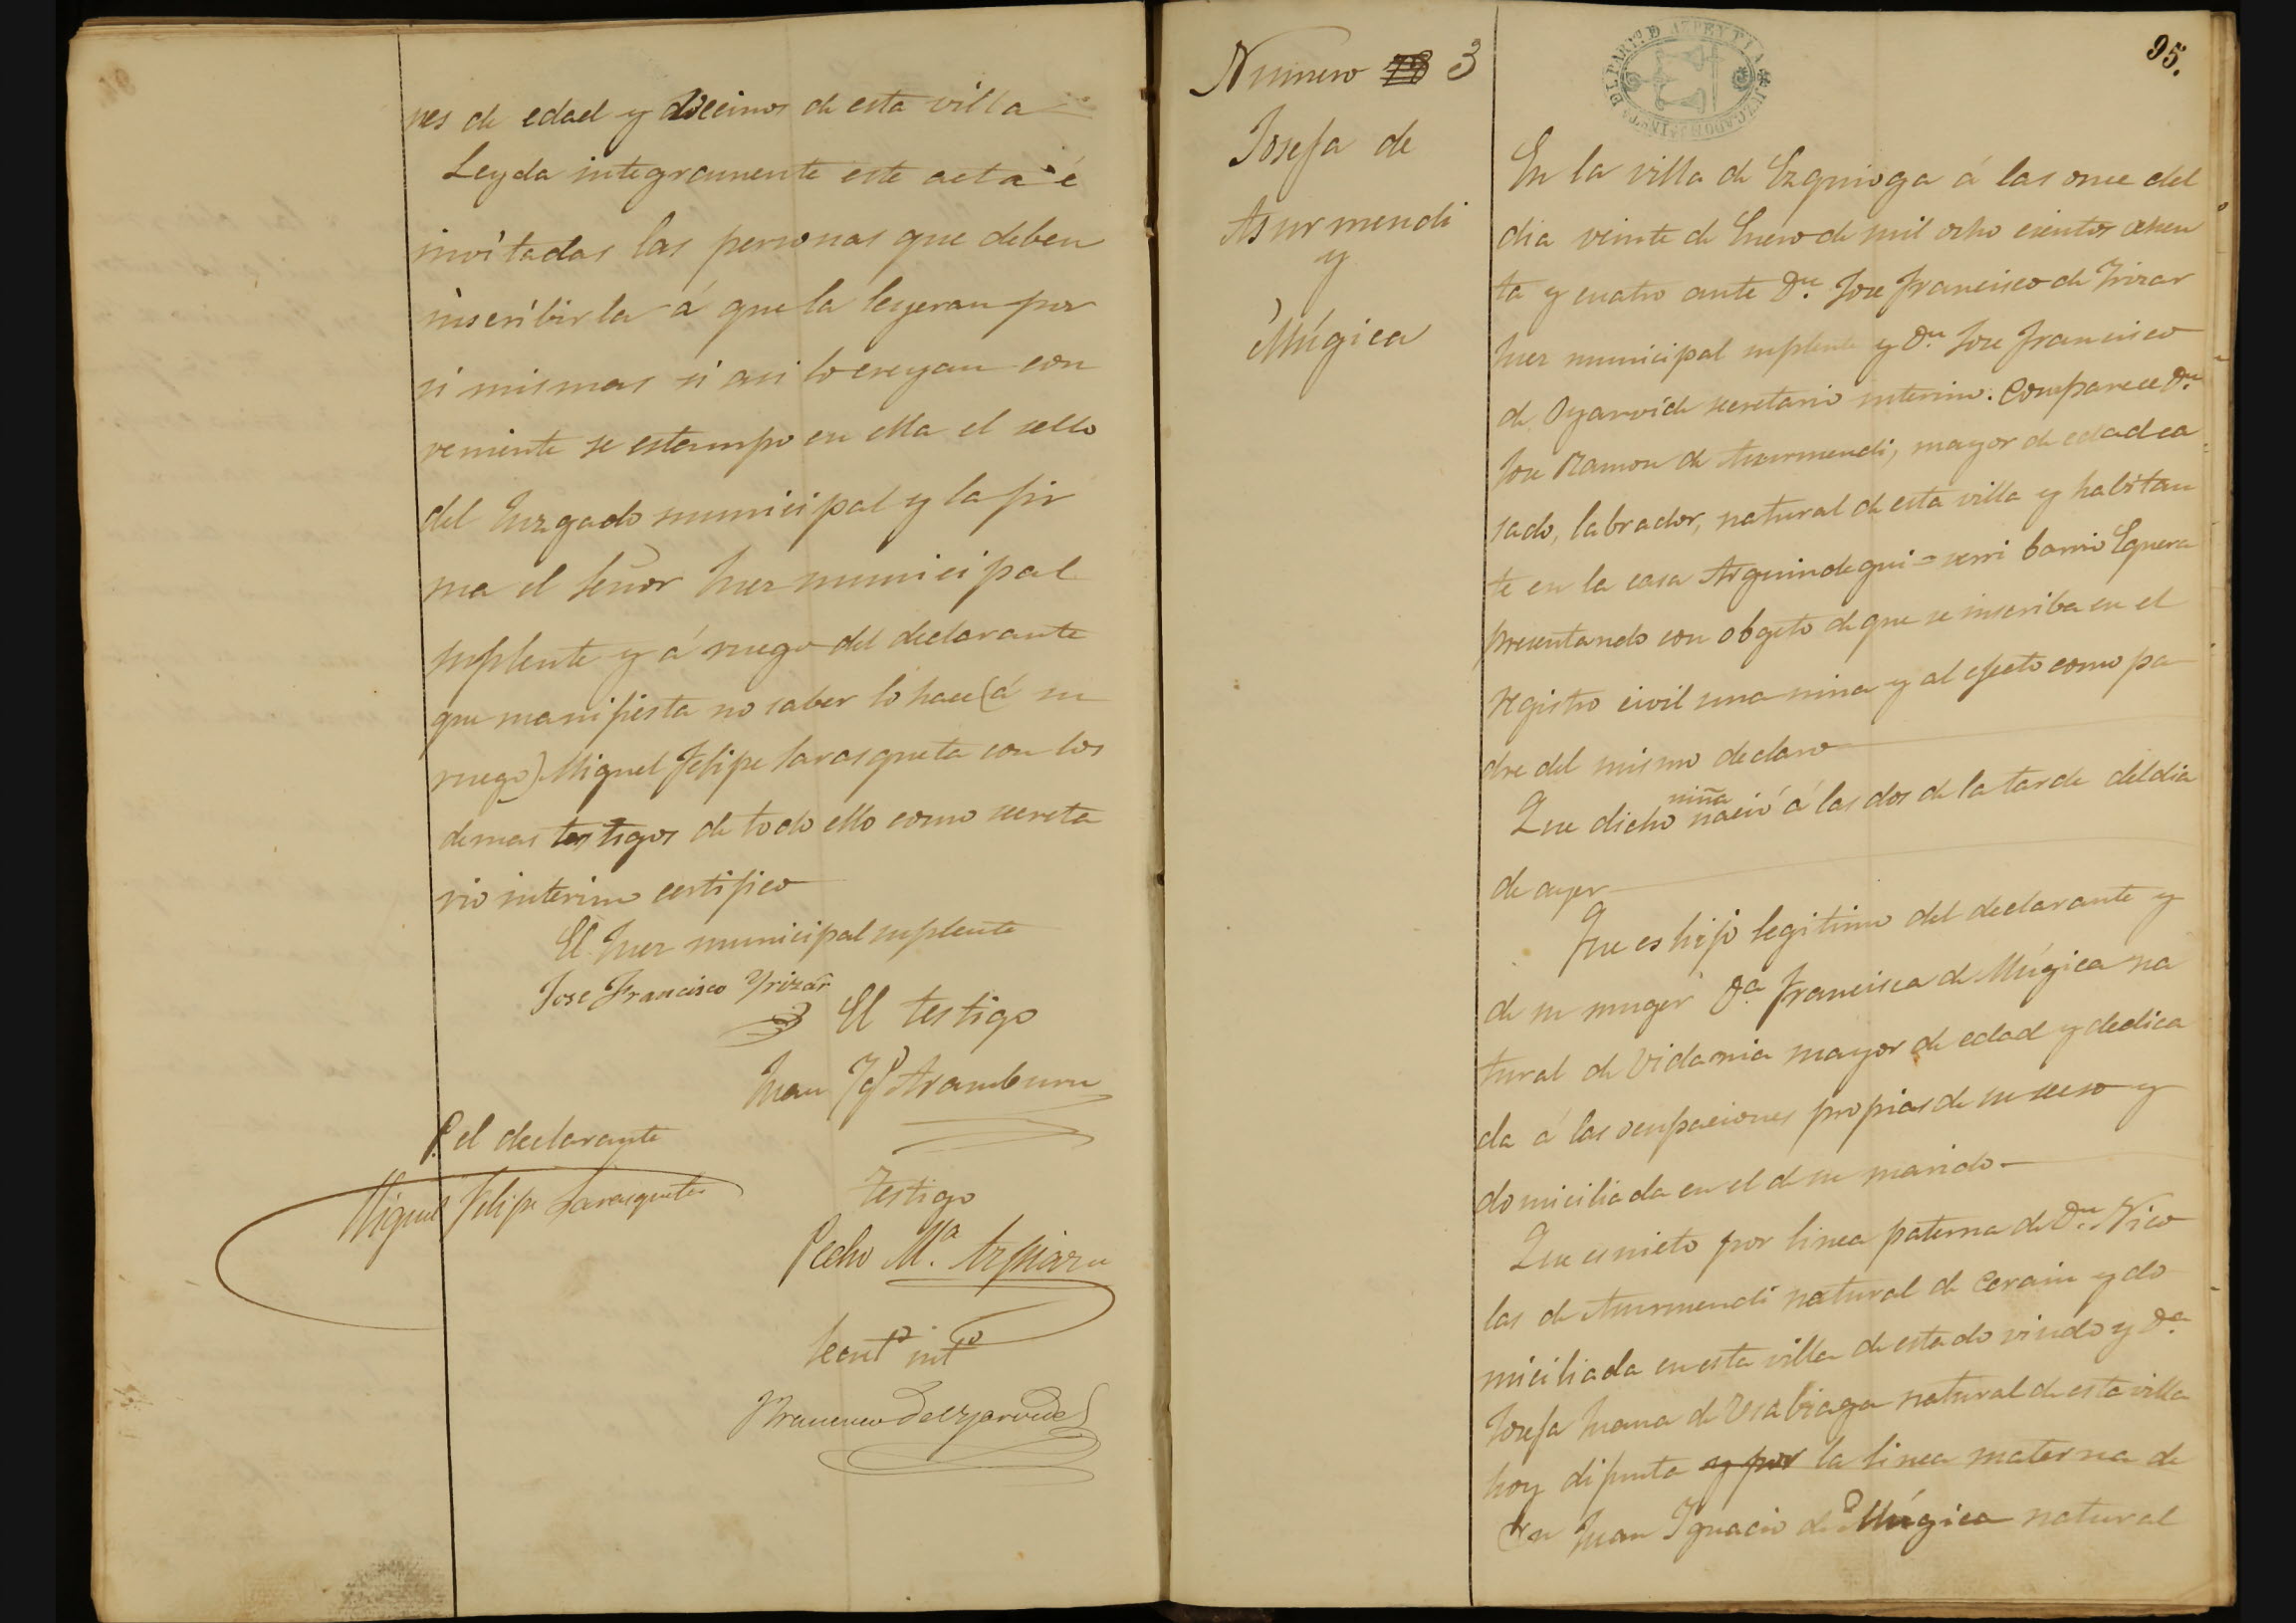 nes de edad y vecinos de esta villa
Leyda integramente este acta é
invitadas las personas que deben
inscribirla á que la leyeran por
si mismas si asi lo creyan con
veniente se estampo en ella el sello
del Juzgado municipal y la fir
ma el Señor Juez municipal
suplente y á ruego del declarante
que manifiesta no saber lo hace (á su
ruego) Miguel Felipe Sarasqueta con los
demas testigos de todo ello como secreta
rio interino certifico
El Juez municipal suplente
Jose Francisco Yrizár
El testigo
Juan Aramburu
P. el declarante
Miguel Felipe Sarasqueta
Testigo
Pedro Mª. Azpiazu
Sectº intº
Francisco de Oyarvide
Numero 78 3
Josefa de
Asurmendi
y
Múgica
95.
PART. D AZPEYTIA
JUZGADO
En la villa de Ezquioga á las once del
dia veinte de Enero de mil ocho cientos ochen
ta y cuatro ante Dn. Jose Francisco de Irizar
Juez municipal suplente y Dn Jose Francisco
de Oyarvide secretario interino. Comparece Dn.
Jose Ramon de Asurmendi, mayor de edad ca
sado, labrador, natural de esta villa y habitan
te en la casa Arguindegui=berri barrio Eguera
presentando con objeto de que se inscriba en el
registro civil una nina y al efecto como pa
dre del mismo declaro
niña
Que dicho nació á las dos de la tarde del dia
de ayer
Que es hijo legitimo del declarante y
de su muger Dª Francisca de Múgica na
tural de Vidania mayor de edad y dedica
da á las ocupaciones propias de su secso y
domiciliada en el de su marido
Que es nieto por linea paterna de Dn. Nico
las de Asurmendi natural de Cerain y do
miciliada en esta villa de estado viudo y Dª
Josefa Juana de Usabiaga natural de esta villa
hoy difunta y por la linea materna de
Dn Juan Ignacio de Múgica natural